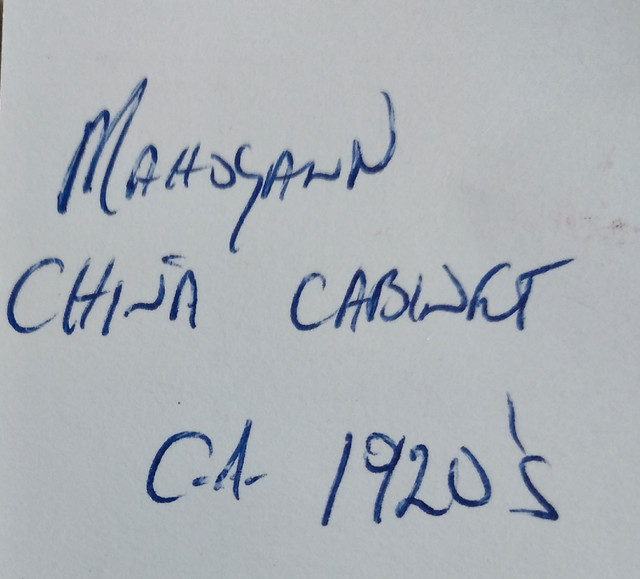 MAHOGANN
CHINA CABINET
C.A. 1920's